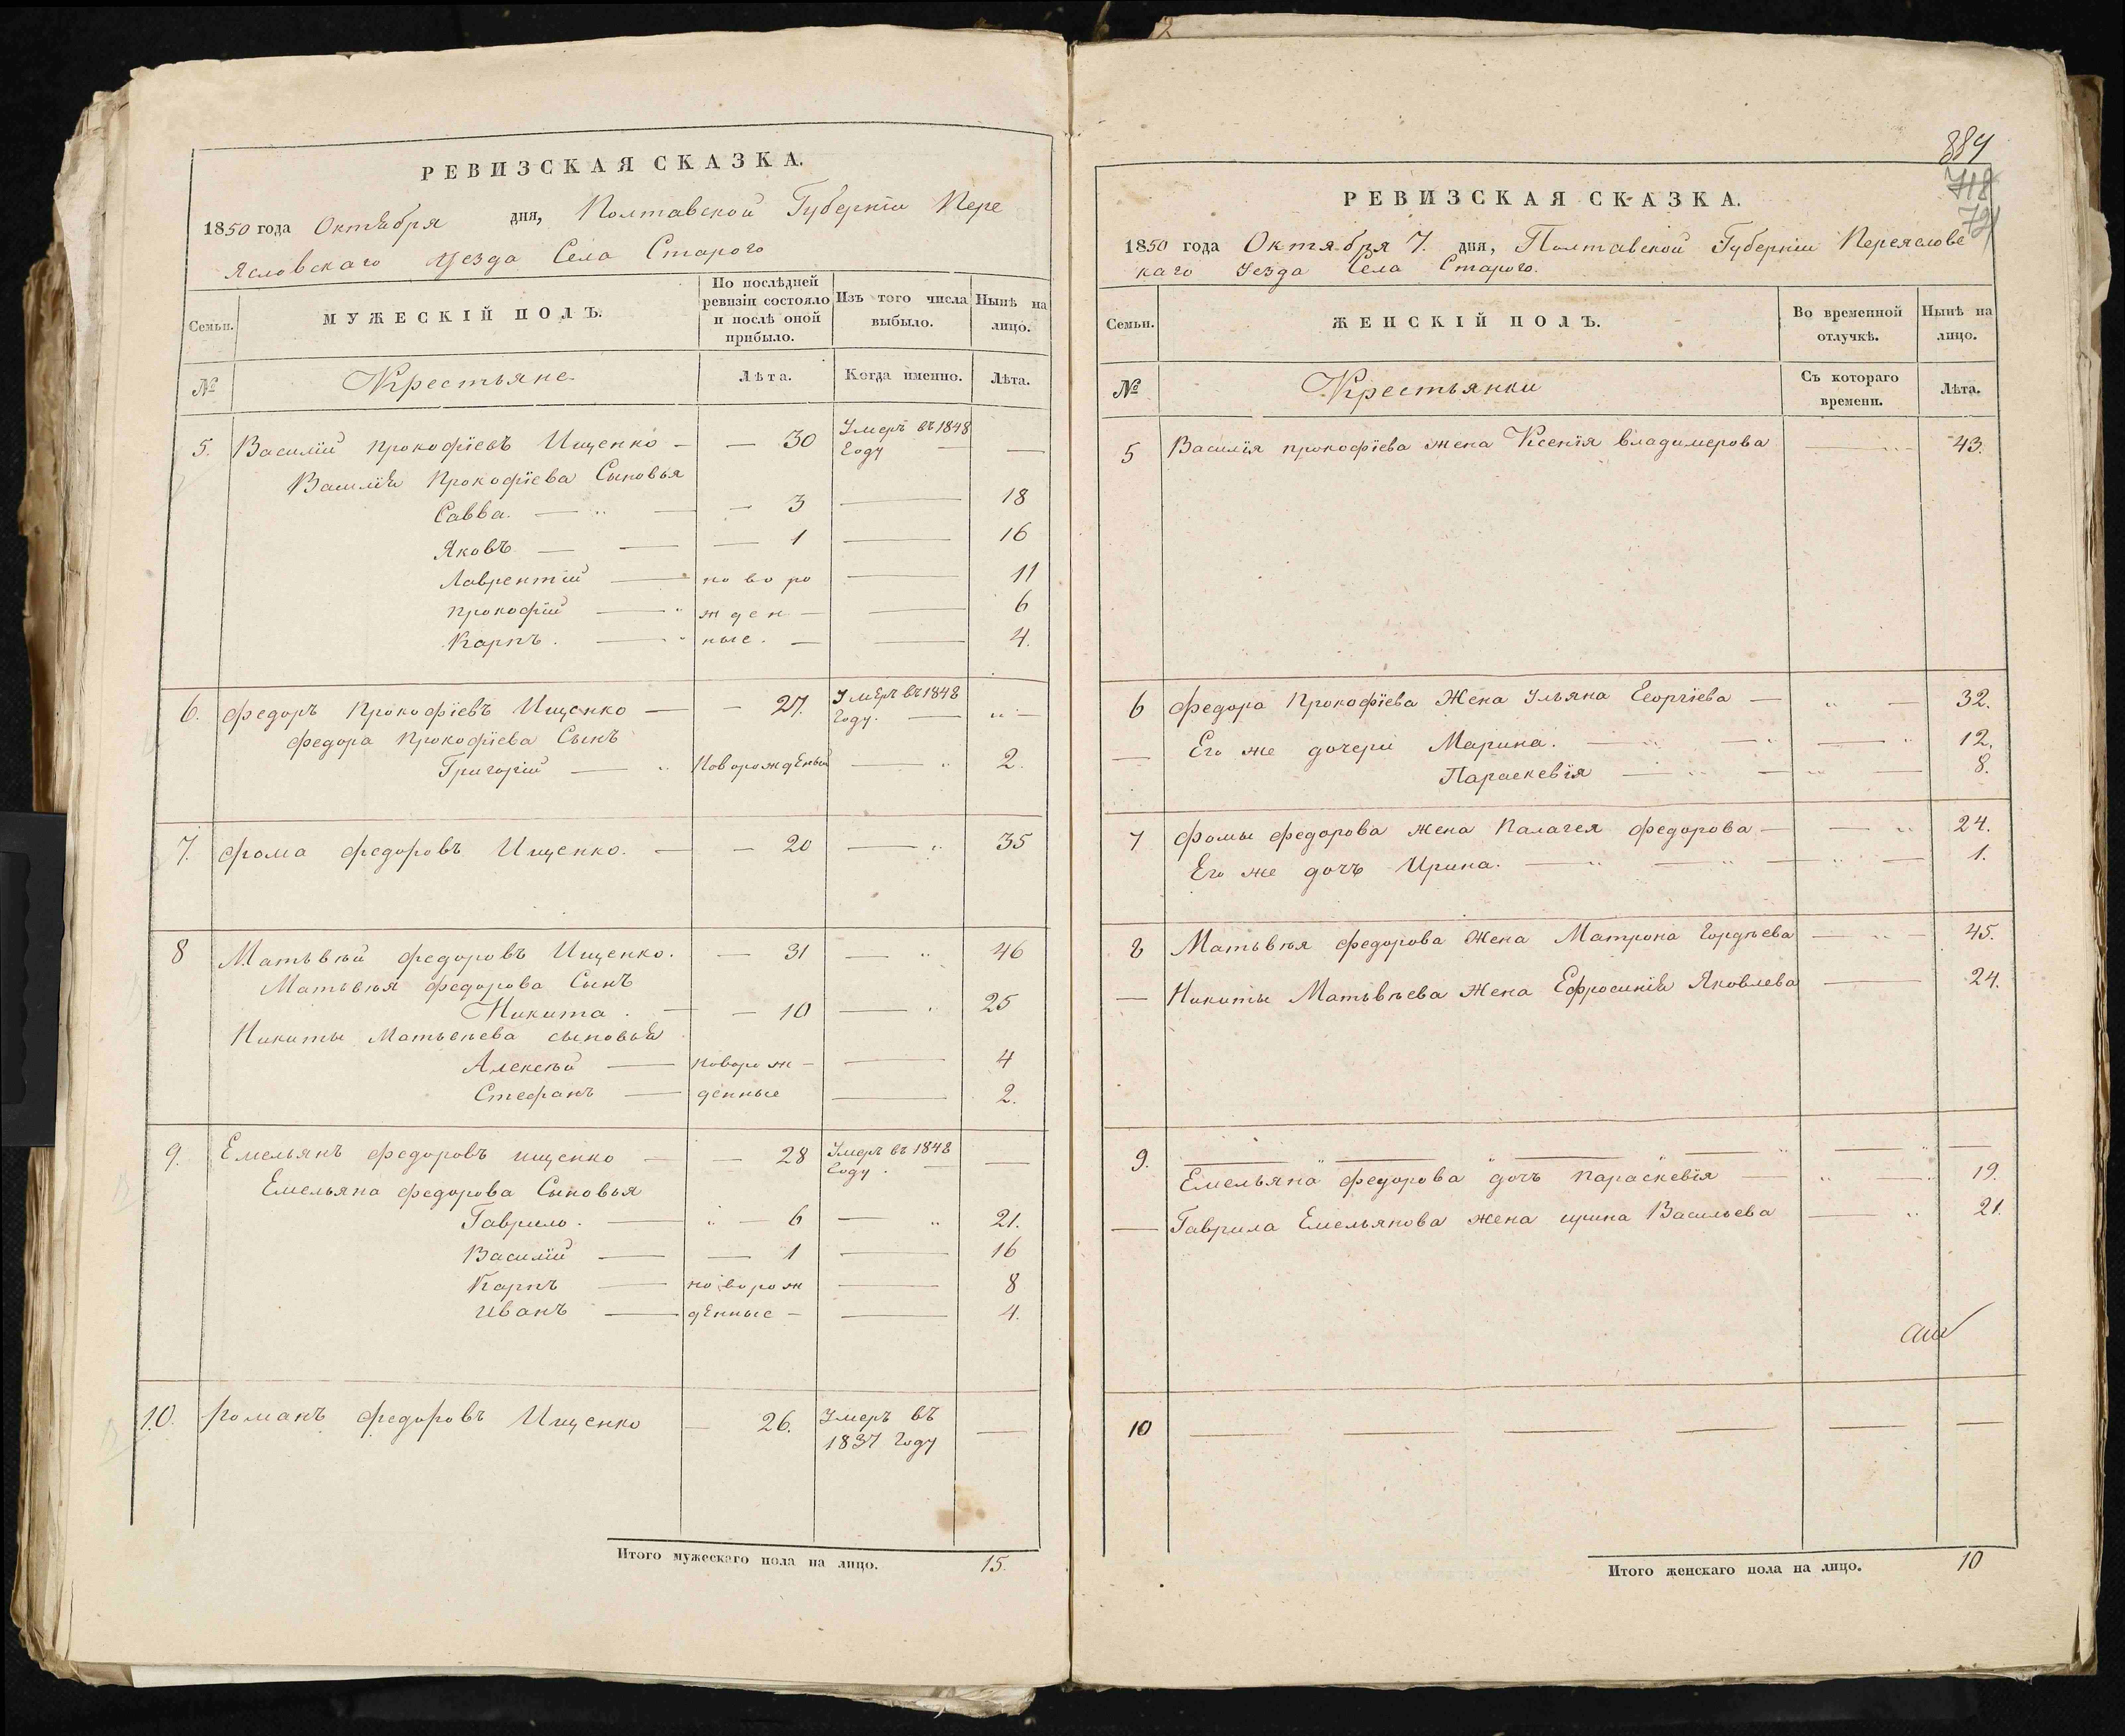 РЕВИЗСКАЯ СКАЗКА.
1850 года Октября дня, Полтавской Губерніи Пере
ясловскаго Уезда Села Старого
Семьи.
МУЖЕСКІЙ ПОЛЪ.
По послѣдней ревизіи состояло и послѣ оной прибыло.
Изъ того числа выбыло.
Нынѣ на лицо.
№
Крестьяне
Лѣта.
Когда именно.
Лѣта.
5. Василій Прокофіевъ Ищенко — — 30 Умеръ въ 1848 Году — —
Василія Прокофіева Сыновья
Савва. — — — 3 — 18
Яковъ — — — 1 — 16
Лаврентій — ново ро — 11
Прокофій — жден — — 6
Карпъ. — ные. — — 4.
6. Федоръ Прокофіевъ Ищенко — — 27. Умеръ въ 1848 Году. — —
Федора Прокофіева Сынъ
Григорій — Новорожденый — 2.
7. Фома Федоровъ Ищенко. — — 20 — 35
8 Матьвѣй Федоровъ Ищенко. — 31 — 46
Матьвѣя Федорова Сынъ
Никита. — — 10 — 25
Никиты Матьвѣева сыновья
Алексѣй — новорож — — 4
Стефанъ — денные — 2.
9. Емельянъ Федоровъ ищенко — — 28 Умеръ въ 1848 Году. — —
Емельяна Федорова Сыновья
Гаврило. — — 6 — 21.
Василій — — 1 — 16
Карпъ — новорож — 8
иванъ — денные — — 4.
10. Романъ Федоровъ Ищенко — 26. Умеръ въ 1837 Году —
Итого мужескаго пола на лицо. 15.
884
718
РЕВИЗСКАЯ СКАЗКА.
1850 года Октября 7. дня, Полтавской Губерніи Переяслове
каго Уезда Села Старого.
Семьи.
ЖЕНСКІЙ ПОЛЪ.
Во временной отлучкѣ.
Нынѣ на лицо.
№
Крестьянки
Съ котораго времени.
Лѣта.
5 Василія прокофіева жена Ксенія владимерова — 43.
6 Федора Прокофіева Жена Ульяна Георгіева — — 32.
— Его же дочери Марина. — — — 12.
Параскевія — — — 8.
7 Фомы Федорова жена Палагея Федорова — — 24.
Его же дочъ Ирина. — — — — 1.
8 Матьвѣя Федорова Жена Матрона Гордѣева — — 45.
— Никиты Матьвѣева Жена Ефросинія Яковлева — 24.
9. — — — — — —
Емельяна Федорова дочъ Параскевія — — 19.
— Гаврила Емельянова жена ирина Васильева — 21.
10 — — — — — —
Итого женскаго пола на лицо. 10